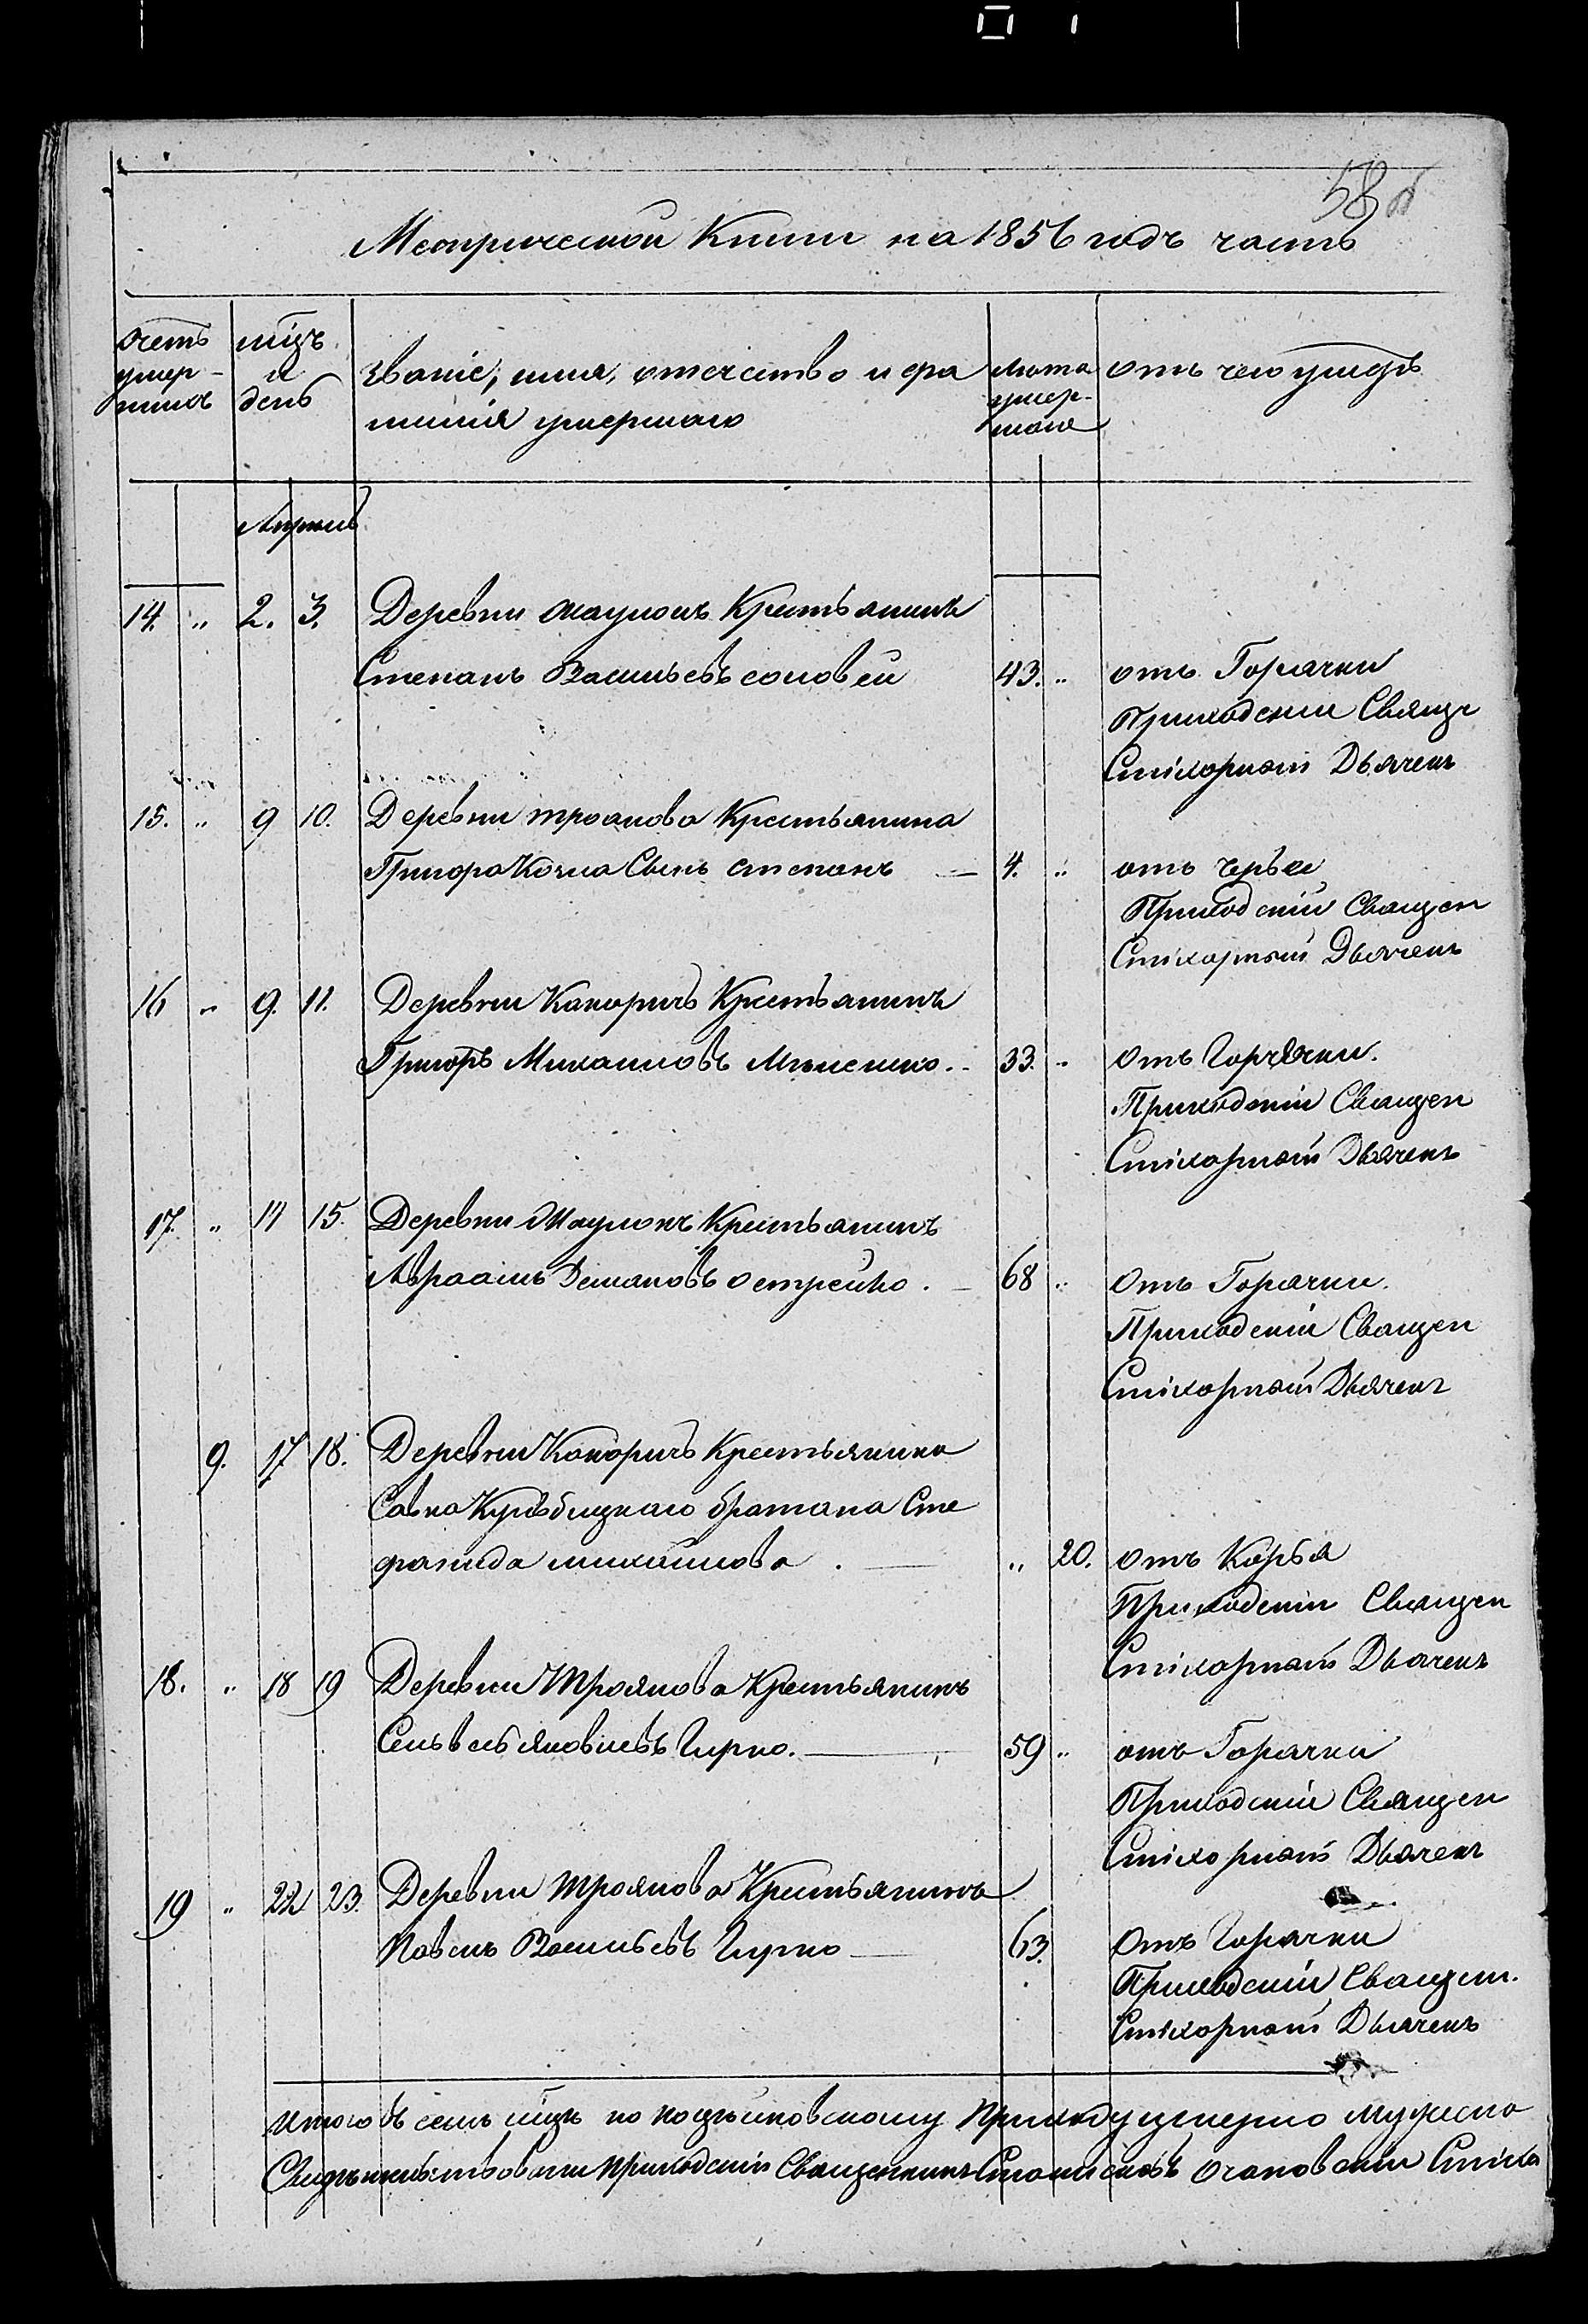 58
Метрической Книги на 1856 годъ часть
счетъ умершихъ
мцъ и день
званіе, имя, отечество и фамилія умершаго
лѣта умершаго
отъ чего умеръ
Апрель
14. „ 2. 3. Деревни Крестьянинъ
Степанъ Васильевъ соловей 43. „ отъ Горячки
Приходскій Свящ
Стихорный Дьячекъ
15. „ 9 10. Деревни троянова Крестьянина
Григора Сынъ степанъ — 4. „ отъ
Приходскій Священ
Стихорный Дьячекъ
16 „ 9. 11. Деревни Каноричъ Крестьянинъ
Григоръ Михаиловъ 33. „ Отъ Горячки.
Приходскій Священ
Стихорный Дьячекъ
17. „ 14 15. Деревни Крестьянинъ
Авраамъ Демяновъ острейко. — 68 „ Отъ Горячки.
Приходскій Священ
Стихорный Дьячекъ
9. 17 18. Деревни Каноричъ Крестьянина
Савка братана Сте
фанида михайлова. — „ 20. отъ Корья
Приходскій Священ
Стихорный Дьячекъ
18. „ 18 19 Деревни Троянова Крестьянинъ
яковлевъ Гирко. — 59 „ отъ Горячки
Приходскій Священ
Стихорный Дьячекъ
19 „ 22 23. Деревни Троянова Крестьянинъ
Павелъ Васильевъ Гирко — 63. Отъ Горячки
Приходскій Священ.
Стихорный Дьячекъ
Итого въ семъ мцъ по приходу умерло мужеска
приходскій Священникъ Станиславъ Стиха